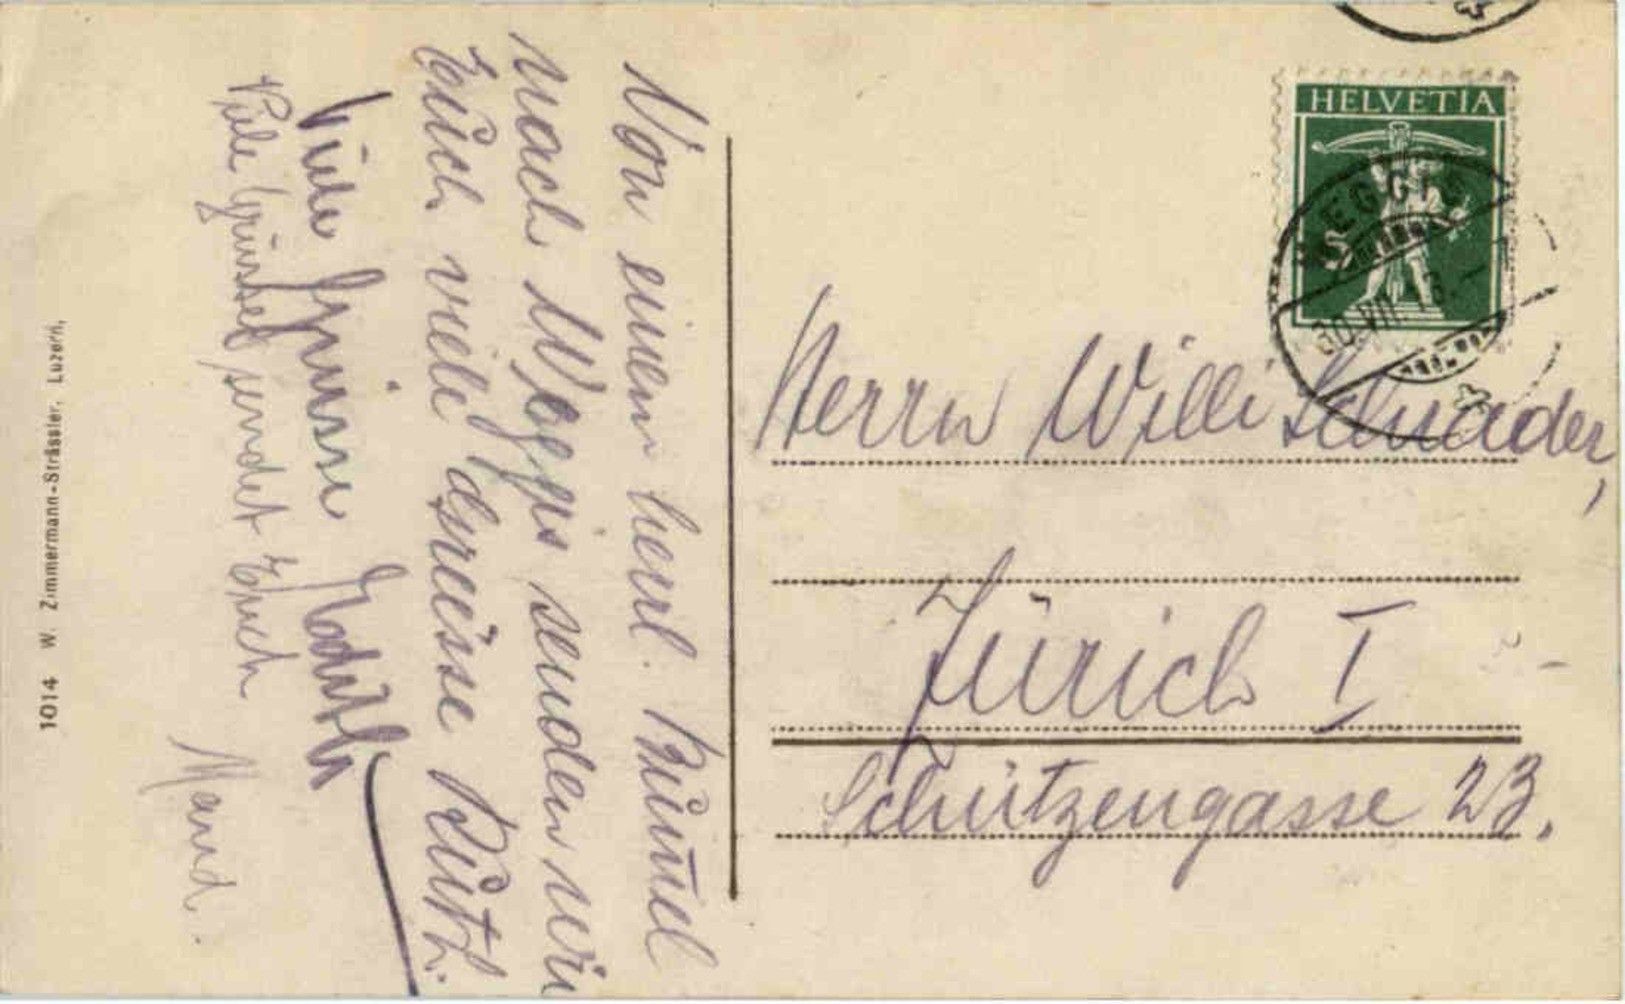 Von einem herrl. Bummel
nach Weggis senden wir
Euch viele Grüsse Ruth.
Viele Grüsse
Viele Grüsse sendet Euch
Maud.
1014 W. Zimmermann-Strässler, Luzern.
HELVETIA
WEGGIS
30.VII
Herrn Willi Schnader,
Zürich I
Schützengasse 23.